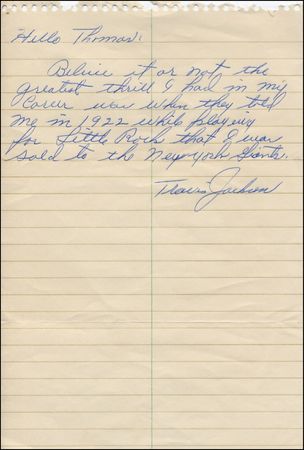 Hello Thomas:
Belive it or not the
greatest thrill I had in my
Career was when they told
me in 1922 while playing
for Little Rock that I was
sold to the New York Giants.
Travis Jackson